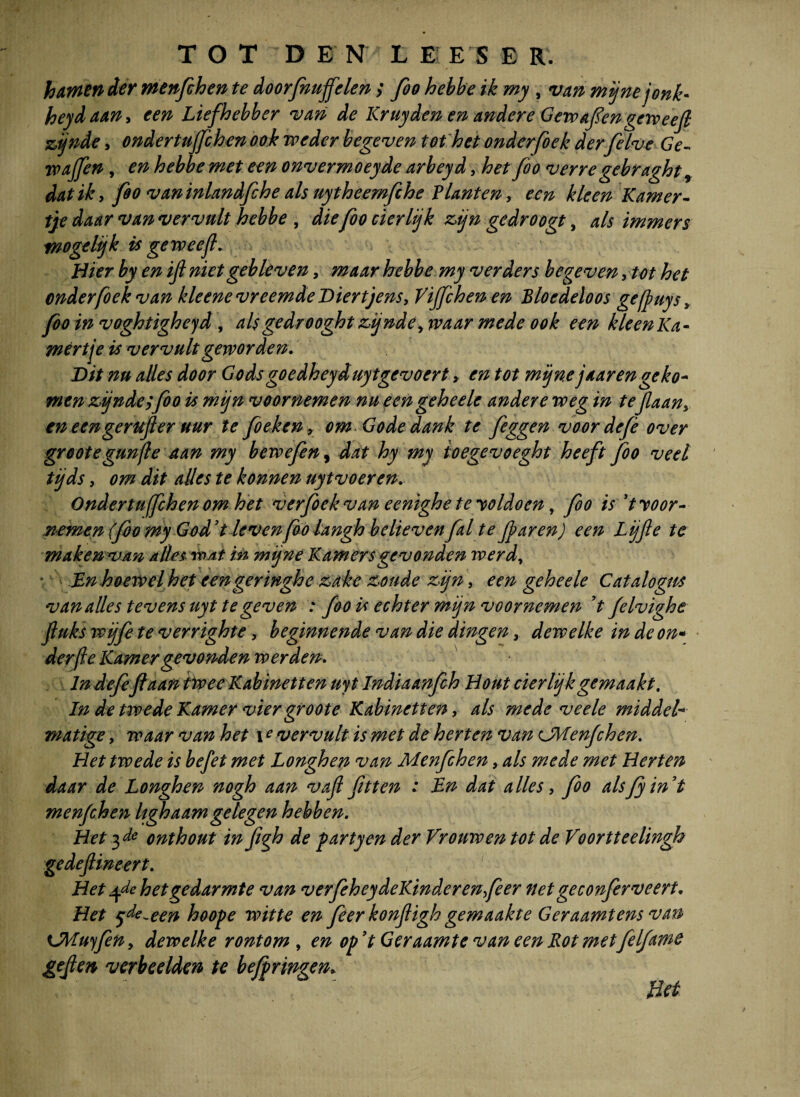 TOT DEN LEESER.
hamen der menſchen te doorſnuffelen ; ſoo hebbe ik my , van mijne jonk-
heyd aan, een Liefhebber van de Kruyden en andere Gewaſſen geweeſt
zijnde, ondertuſſchen ook weder begeven tot het onderſoek der ſelve Ge-
waſſen , en hebbe met een onvermoeyde arbeyd, het ſoo verre gebraght,
dat ik, ſoo van inlandſche als uytheemſche Planten, een kleen Kamer-
tje daar van vervult hebbe , die ſoo cierlijk zijn gedroogt, als immers
mogelijk is geweeſt.
Hier by en iſt niet gebleven, maar hebbe my verders begeven, tot het
onderſoek van kleene vreemde Diertjens, Viſſchen en Bloedeloos geſpuys,
ſoo in voghtigheyd , als gedrooght zijnde, waar mede ook een kleen Ka-
mertje is vervult geworden.
Dit nu alles door Gods goedheyd uytgevoert, en tot mijne jaaren geko-
men zijnde; ſoo is mijn voornemen nu een geheele andere weg in te ſlaan,
en een geruſter uur te ſoeken, om Gode dank te ſeggen voor deſe over
groote gunſte aan my beweſen, dat hy my toegevoeght heeft ſoo veel
tijds, om dit alles te konnen uytvoeren.
Ondertuſſchen om het verſoek van eenighe te voldoen, ſoo is 't voor-
nemen (ſoo my God 't leven ſoo langh believen ſal te ſparen) een Lijſte te
maken van alles wat in mijne Kamers gevonden werd,
En hoewel het een geringhe zake zoude zijn, een geheele Catalogus
van alles tevens uyt te geven : ſoo is echter mijn voornemen 't ſelvighe
ſtuks wijſe te verrighte, beginnende van die dingen, dewelke in de on-
derſte Kamer gevonden werden.
In deſe ſtaan twee Kabinetten uyt Indiaanſch Hout cierlijk gemaakt.
In de twede Kamer vier groote Kabinetten, als mede veele middel-
matige, waar van het 1e vervult is met de herten van Menſchen.
Het twede is beſet met Longhen van Menſchen, als mede met Herten
daar de Longhen nogh aan vaſt ſitten : En dat alles, ſoo als ſy in 't
menſchen lighaam gelegen hebben.
Het 3de onthout in ſigh de partyen der Vrouwen tot de Voortteelingh
gedeſtineert.
Het 4de het gedarmte van verſcheyde Kinderen, ſeer net geconſerveert.
Het 5de een hoope witte en ſeer konſtigh gemaakte Geraamtens van
Muyſen, dewelke rontom , en op 't Geraamte van een Rot met ſelſame
geſten verbeelden te beſpringen.
Het